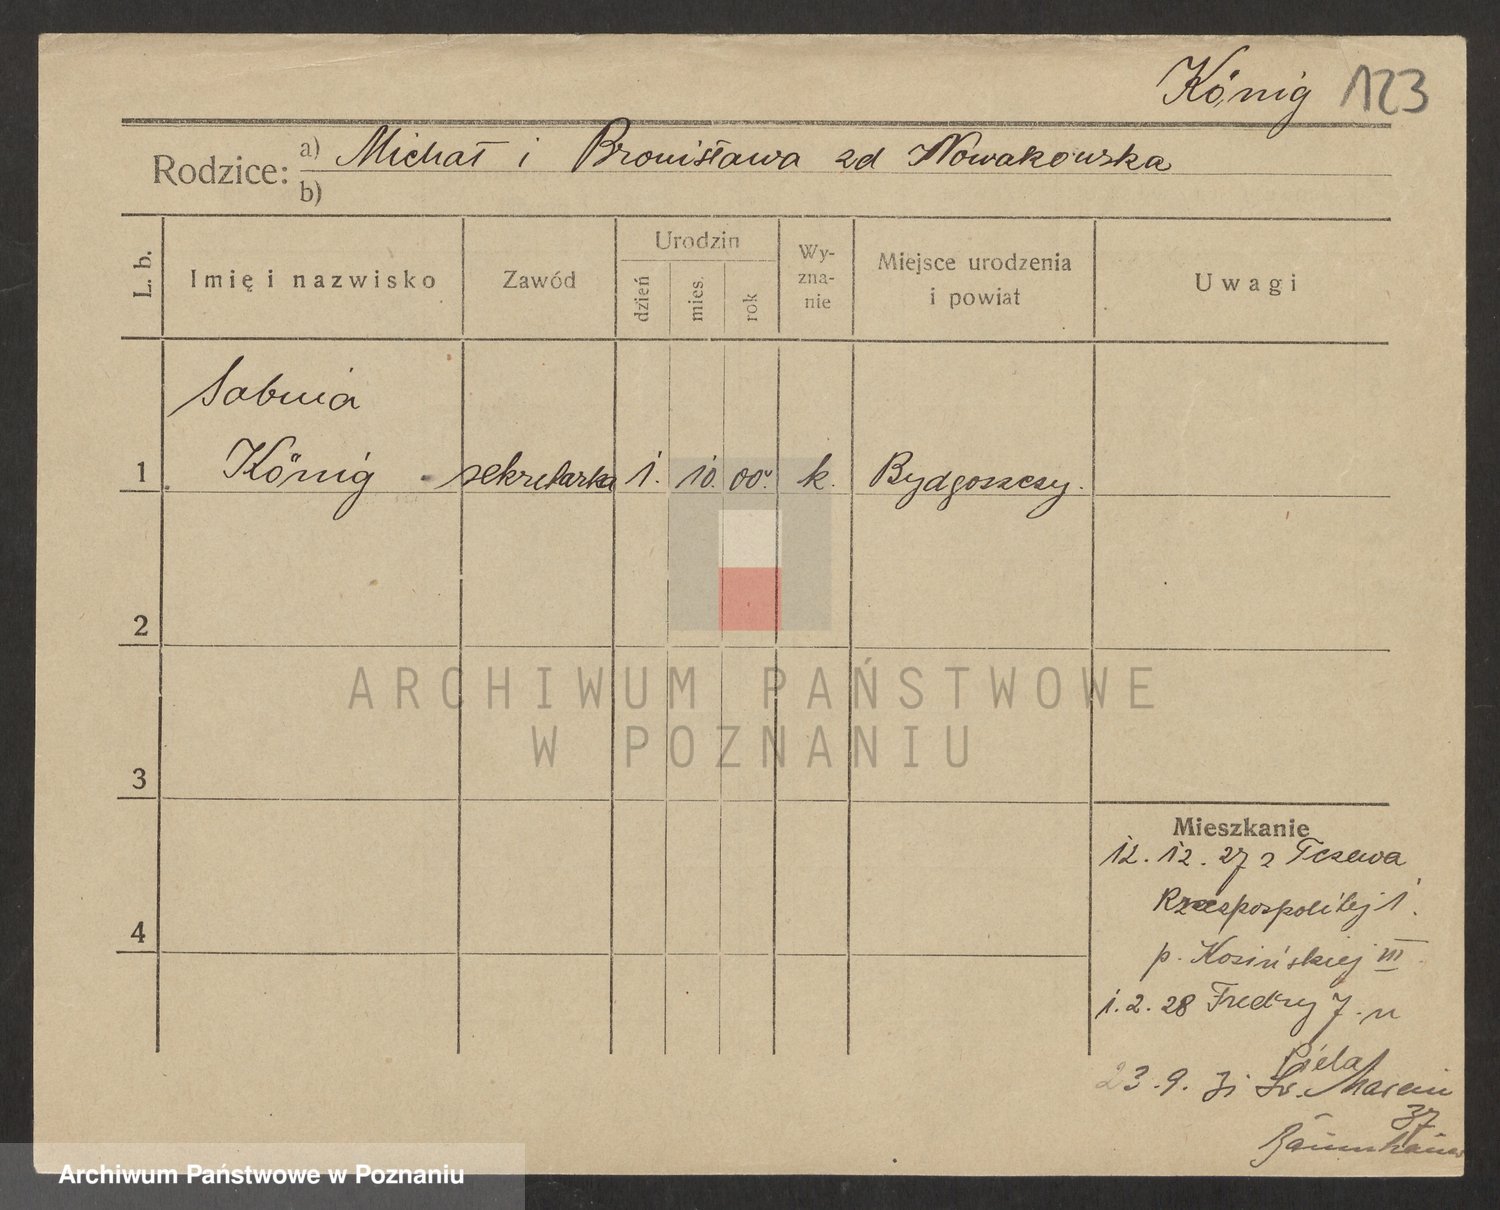 König 123
Rodzice: a) Michał i Bronisława zd Nowakowska
b)
L. b.
Imię i nazwisko
Zawód
Urodzin
dzień
mies.
rok
Wy-
zna-
nie
Miejsce urodzenia
i powiat
Uwagi
Sabina
1 König sekretarka 1. 10. 00. k. Bydgoszczy.
2
3
4
Mieszkanie
12. 12. 27 z Tczewa
Rzeczpospolitej 1.
p. Kosińskiej III
1. 2. 28 Fredry 7. u
Piela
23. 9. 31 Św. Marcin
37
ARCHIWUM PAŃSTWOWE
W POZNANIU
Archiwum Państwowe w Poznaniu